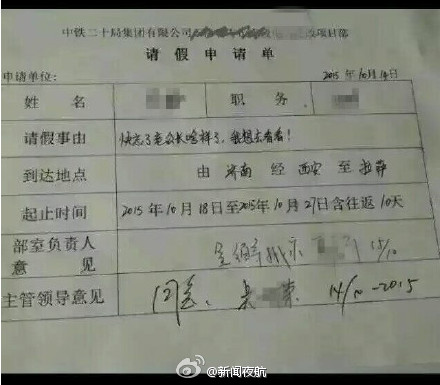 中铁二十局集团有限公司 改项目部
请假申请单
申请单位： 2015年10月14日
姓名 职务
请假事由 快忘了老公长啥样了，我想去看看！
到达地点 由 济南 经 西安 至 拉萨
起止时间 2015年10月18日至2015年10月27日含往返10天
部室负责人
意见 15/10
主管领导意见 同意 14/10-2015
@新闻夜航